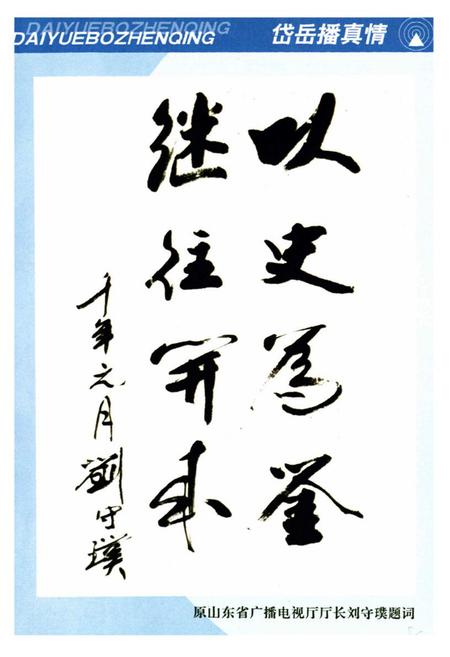 DAIYUEBOZHENQING
DAIYUEBOZHENQING
岱岳播真情
以史為鉴
继往开来
千年元月刘守璞
原山东省广播电视厅厅长刘守璞题词